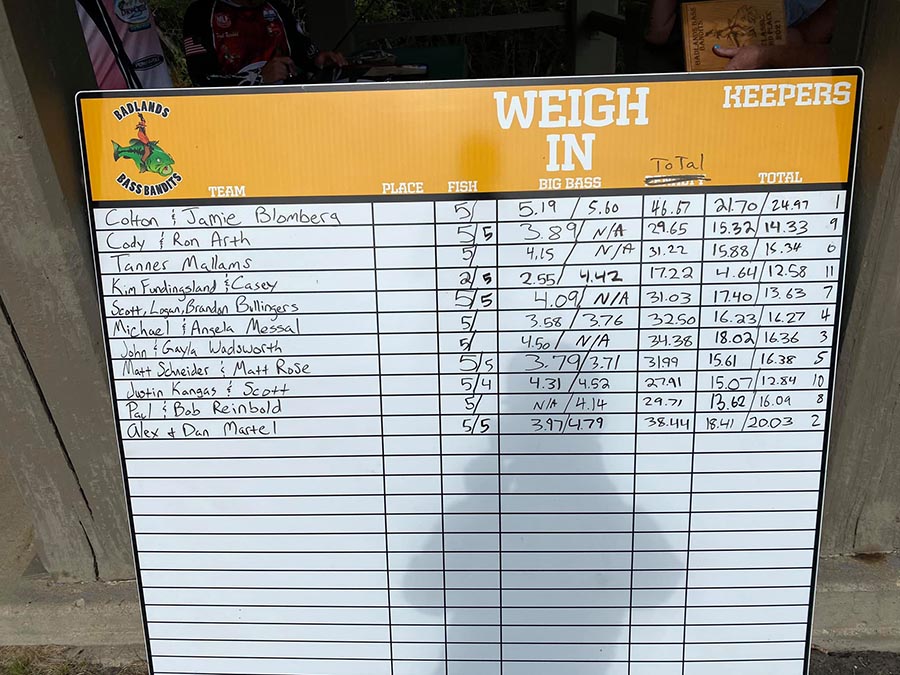 BADLANDS
BASS BANDITS
WEIGH
IN
KEEPERS
TEAM PLACE FISH BIG BASS ToTal TOTAL
Colton & Jamie Blomberg 5/ 5.19 / 5.60 46.67 21.70 / 24.97 1
Cody & Ron Arth 5/5 3.89 / N/A 29.65 15.32 / 14.33 9
Tanner Mallams 5/ 4.15 / N/A 31.22 15.88 / 15.34 6
Kim Fundingsland & Casey 2/5 2.55 / 4.42 17.22 4.64 / 12.58 11
Scott, Logan, Brandon Bullingers 5/5 4.09 / N/A 31.03 17.40 / 13.63 7
Michael & Angela Messal 5/ 3.58 / 3.76 32.50 16.23 / 16.27 4
John & Gayla Wadsworth 5/ 4.50 / N/A 34.38 18.02 / 16.36 3
Matt Schneider & Matt Rose 5/5 3.79 / 3.71 31.99 15.61 / 16.38 5
Justin Kangas & Scott 5/4 4.31 / 4.52 27.91 15.07 / 12.84 10
Paul & Bob Reinbold 5/ N/A / 4.14 29.71 13.62 / 16.09 8
Alex & Dan Martel 5/5 3.97 / 4.79 38.44 18.41 / 20.03 2